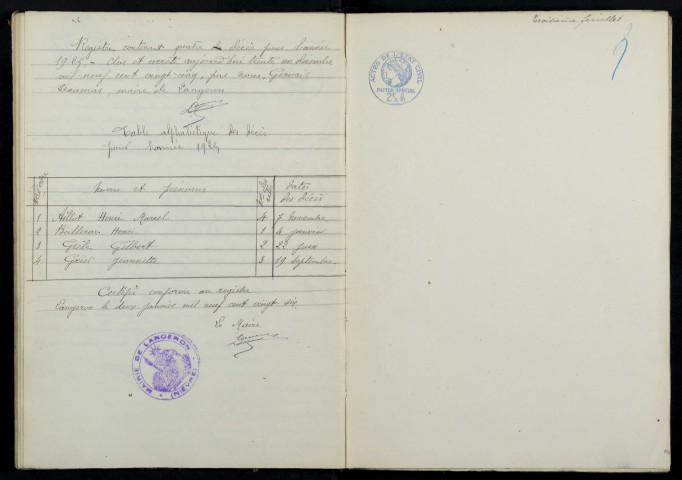 Registre contenant quatre décès pour l'année
1925. - Clos et arrêté aujourd'hui trente un décembre
mil neuf cent vingt-cinq, par nous, Gervais
maire de Langeron
Table alphabétique des décès
pour l'année 1925
Noms et prénoms Dates des décès
1 Aillot Henri Marcel 4 7 novembre
2 Henri 1 4 janvier
3 Gilbert 2 22 juin
4 Jeannette 3 19 septembre
Certifié conforme au registre
Langeron le deux janvier mil neuf cent vingt six
Le Maire
MAIRIE DE LANGERON (NIÈVRE)
Troisième feuillet
ACTES DE L'ÉTAT CIVIL
PAPIER SPÉCIAL